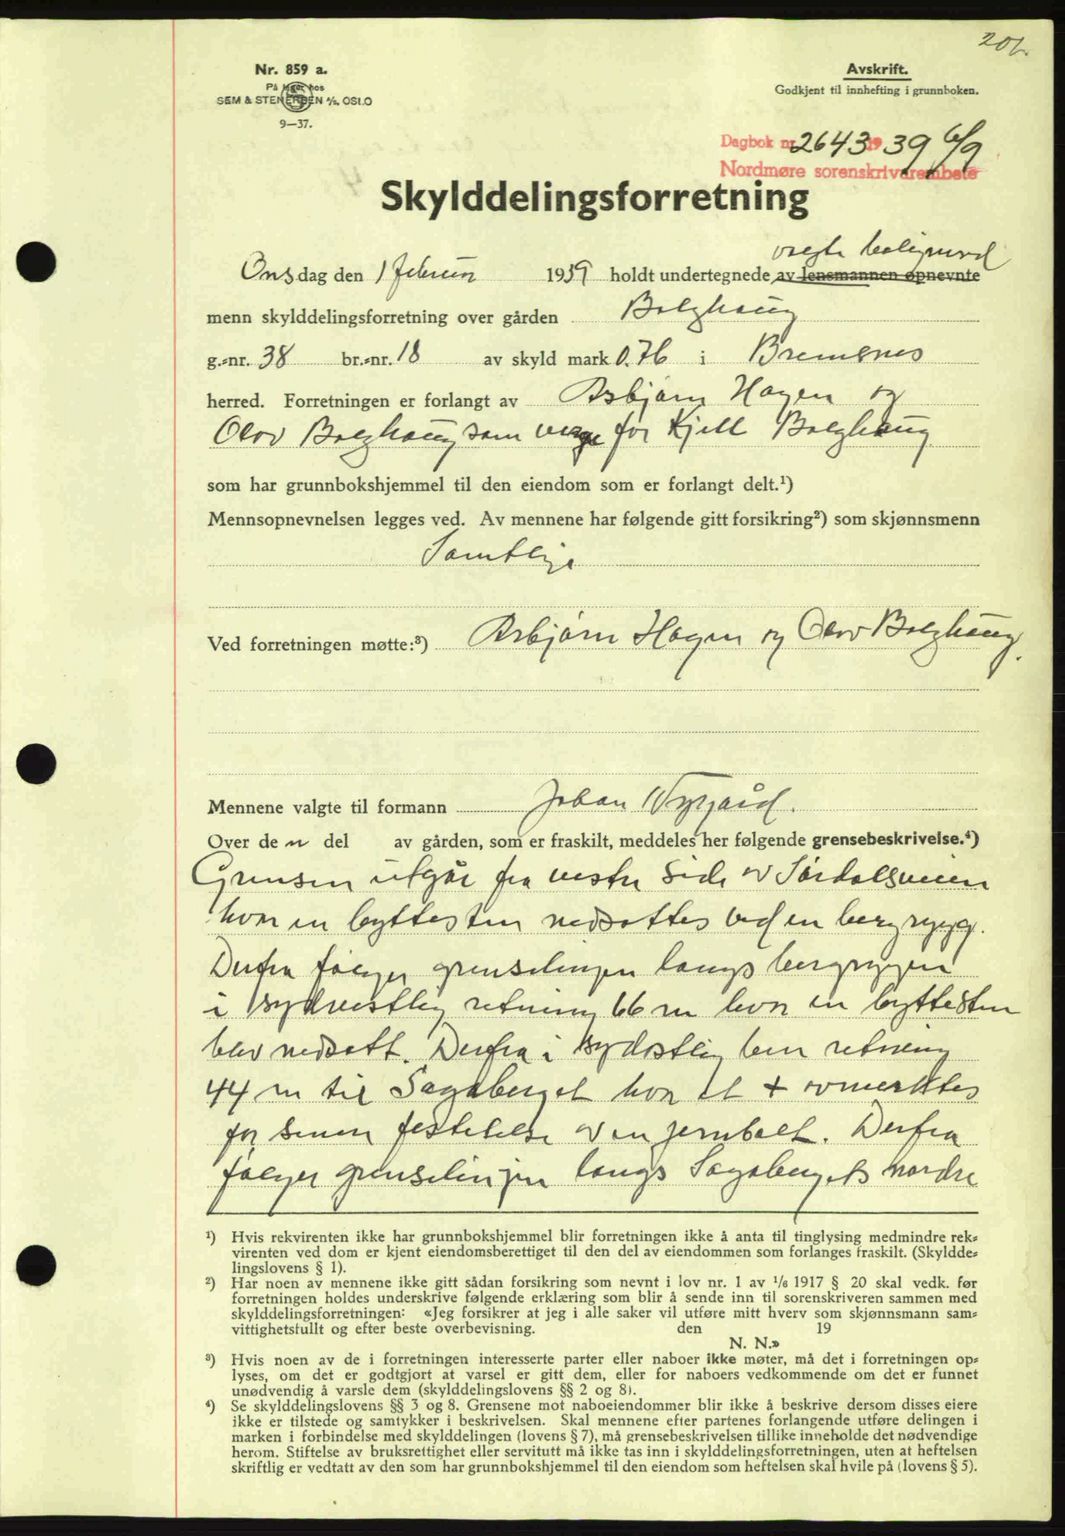 206.
Nr. 859 a.
På lager hos
SEM & STENERSEN A/S, OSLO
9—37.
Avskrift.
Godkjent til innhefting i grunnboken.
Dagbok nr. 2643 1939 6/9
Nordmøre sorenskriverembete
Skylddelingsforretning
valgte
Onsdag den 1 februar 1939 holdt undertegnede av lensmannen opnevnte
menn skylddelingsforretning over gården Bolghaug
g.-nr. 38 br.-nr. 18 av skyld mark 0.76 i Bremsnes
herred. Forretningen er forlangt av Asbjørn Hagen og
Olav Bolghaug som verge for Kjell Bolghaug
som har grunnbokshjemmel til den eiendom som er forlangt delt.¹)
Mennsopnevnelsen legges ved. Av mennene har følgende gitt forsikring²) som skjønnsmenn
Samtlige
Ved forretningen møtte:³) Asbjørn Hagen og Olav Bolghaug.
Mennene valgte til formann Johan Nygård.
Over den del av gården, som er fraskilt, meddeles her følgende grensebeskrivelse.⁴)
Grensen utgår fra vestre side av Sørdalsveien
hvor en byttesten nedsattes ved en bergrygg.
Derfra følger grenselinjen langs bergryggen
i sydvestlig retning 66 m hvor en byttesten
blev nedsatt. Derfra i sydostlig ben retning
44 m til Sagaberget hvor et + avmerktes
for senere festelse av en jernbolt. Derfra
følger grenselinjen langs Sagabergets nordre
¹) Hvis rekvirenten ikke har grunnbokshjemmel blir forretningen ikke å anta til tinglysing medmindre rek-
virenten ved dom er kjent eiendomsberettiget til den del av eiendommen som forlanges fraskilt. (Skyldde-
lingslovens § 1).
²) Har noen av mennene ikke gitt sådan forsikring som nevnt i lov nr. 1 av 1/6 1917 § 20 skal vedk. før
forretningen holdes underskrive følgende erklæring som blir å sende inn til sorenskriveren sammen med
skylddelingsforretningen: «Jeg forsikrer at jeg i alle saker vil utføre mitt hverv som skjønnsmann sam-
vittighetsfullt og efter beste overbevisning. den 19
N. N.»
³) Hvis noen av de i forretningen interesserte parter eller naboer ikke møter, må det i forretningen op-
lyses, om det er godtgjort at varsel er gitt dem, eller for naboers vedkommende om det er funnet
unødvendig å varsle dem (skylddelingslovens §§ 2 og 8).
⁴) Se skylddelingslovens §§ 3 og 8. Grensene mot naboeiendommer blir ikke å beskrive dersom disses eiere
ikke er tilstede og samtykker i beskrivelsen. Skal mennene efter partenes forlangende utføre delingen i
marken i forbindelse med skylddelingen (lovens § 7), må grensebeskrivelsen tillike inneholde det nødvendige
herom. Stiftelse av bruksrettighet eller servitutt må ikke tas inn i skylddelingsforretningen, uten at heftelsen
skriftlig er vedtatt av den som har grunnbokshjemmel til den eiendom som heftelsen skal hvile på (lovens § 5).